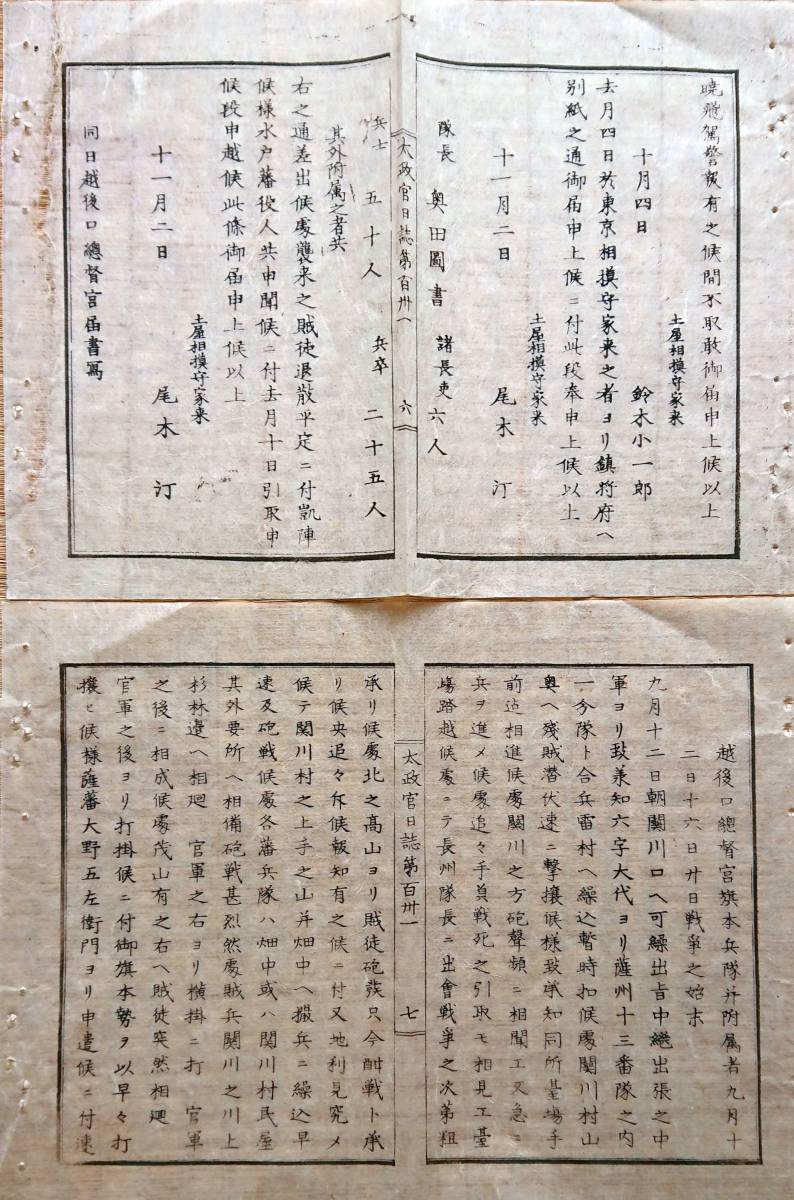 曉飛駕警報有之候間不取敢御届申上候以上
十月四日
土屋相摸守家来
鈴木小一郎
去月四日於東京相摸守家来之者ヨリ鎮将府ヘ
別紙之通御届申上候ニ付此段奉申上候以上
土屋相摸守家来
十一月二日
尾木汀
隊長 奥田圖書 諸長吏六人
太政官日誌第百卅一
六
兵士 五十人 兵卒 二十五人
其外附属之者共
右之通差出候處襲来之賊徒退散平定ニ付凱陣
候様水戸藩役人共申聞候ニ付去月十日引取申
候段申越候此條御届申上候以上
土屋相摸守家来
十一月二日
尾木汀
同日越後口總督宮届書寫
越後口總督宮旗本兵隊并附属者九月十
二日十六日廿日戰爭之始末
九月十二日朝關川口ヘ可繰出旨中繼出張之中
軍ヨリ致兼知六字大代ヨリ薩州十三番隊之内
一分隊ト合兵雷村ヘ繰込暫時扣候處關川村山
奥ヘ殘賊潜伏速ニ擊攘候様致承知同所臺場手
前迠相進候處關川之方砲聲頻ニ相聞エ又急ニ
兵ヲ進メ候處追々手負戰死之引取モ相見エ臺
塲踏越候處ニテ長州隊長ニ出會戰爭之次第粗
太政官日誌第百卅一
七
承リ候處北之高山ヨリ賊徒砲發只今酣戰ト承
リ候央追々斥候報知有之候ニ付又地利見究メ
候テ関川村之上手之山并畑中ヘ撒兵ニ繰込早
速及砲戰候處各藩兵隊ハ畑中或ハ関川村民屋
其外要所ヘ相備砲戰甚烈然處賊兵関川之川上
杉林邊ヘ相廻 官軍之右ヨリ横掛ニ打 官軍
之後ニ相成候處茂山有之右ヘ賊徒突然相廻
官軍之後ヨリ打掛候ニ付御旗本勢ヲ以早々打
攘ヒ候様薩藩大野五左衛門ヨリ申遣候ニ付速